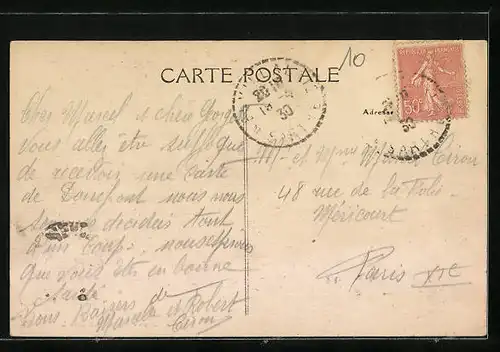 10
CARTE POSTALE
REPUBLIQUE FRANÇAISE
50c
Adresse
30
30
Cher Marcel et chère
Vous allez être
de recevoir une carte
de nous nous
sommes décidés tout
d'un coup. nous espérons
que vous êtes en bonne
santé
Bons Baisers de
Marcelle et Robert
Ciron
M. et Mme Marcel Ciron
48 rue de la Folie
Méricourt
Paris XIe